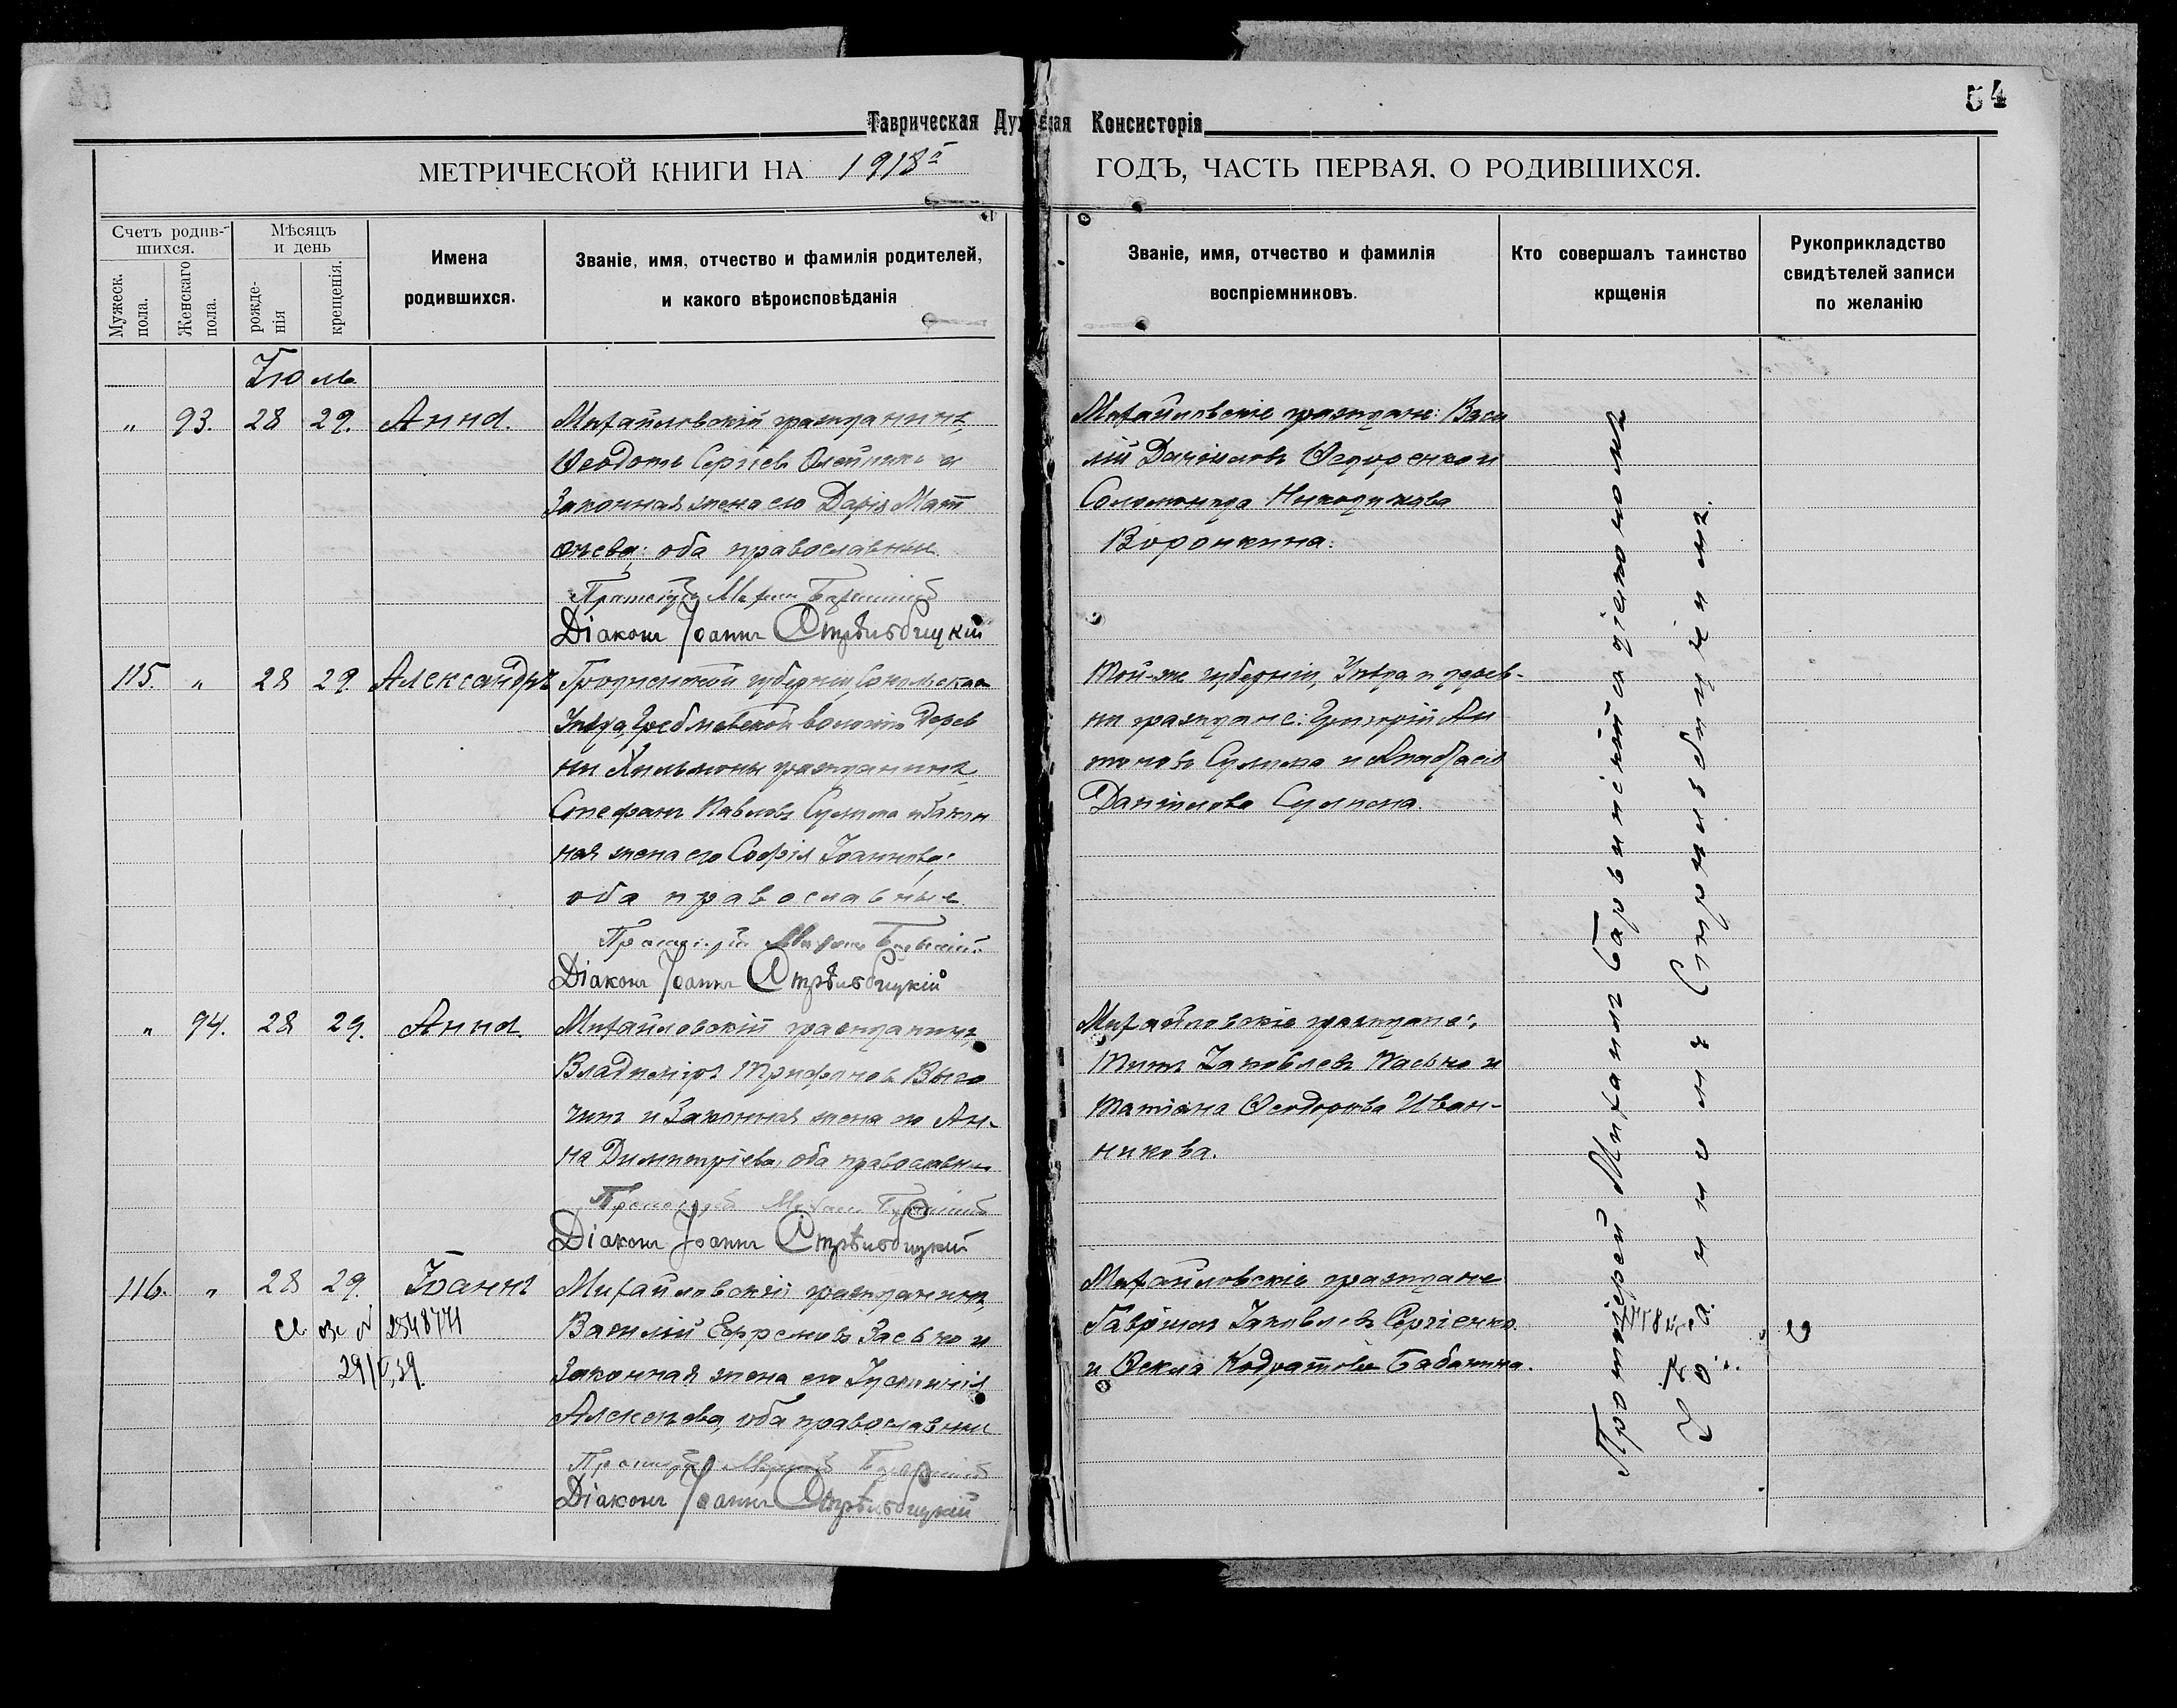 54
Таврическая Духовная Консисторія
МЕТРИЧЕСКОЙ КНИГИ НА 1918й ГОДЪ, ЧАСТЬ ПЕРВАЯ, О РОДИВШИХСЯ.
Счетъ родив-
шихся.
Мужеск.
пола.
Женскаго
пола.
Мѣсяцъ
и день
рожде-
нія
крещенія.
Имена
родившихся.
Званіе, имя, отчество и фамилія родителей,
и какого вѣроисповѣданія
Званіе, имя, отчество и фамилія
воспріемниковъ.
Кто совершалъ таинство
крщенія
Рукоприкладство
свидѣтелей записи
по желанію
Іюль
" 93. 28 29. Анна.
Михайловскій гражданинъ,
Ѳеодотъ Сергіевъ Олейникъ и
Законная жена его Дарія Мат
ѳеева: оба православные.
Протоіерей Михаилъ
Діаконъ Іоаннъ Стрѣльбицкій
Михайловскіе граждане: Васи
лій Даніиловъ Ѳедоренко и
Соломонида Никодимова
Воронкина.
115. " 28 29. Александръ
Гродненской губерніи, Сокольскаго
Уѣзда, волости Дерев
ни гражданинъ
Стефанъ Павловъ Сулима и Закон
ная жена его Софія Іоаннова;
оба православные
Протоіерей Михаилъ
Діаконъ Іоаннъ Стрѣльбицкій
Той-же губерніи, Уѣзда и дерев-
ни граждане: Григорій Ан
тоновъ Сулима и Анастасія
Даніилова Сулима.
" 94. 28 29. Анна.
Михайловскій гражданинъ,
Владиміръ Трифоновъ Высо
чинъ и Законная жена его Ан-
на Димитріева, оба православные
Протоіерей Михаилъ
Діаконъ Іоаннъ Стрѣльбицкій
Михайловскіе граждане:
Титъ Іаковлевъ Пасько и
Татіана Ѳеодорова Иван-
никова.
116. " 28 29. Іоаннъ
2548771
29/V,39.
Михайловскій гражданинъ,
Василій Ефремовъ Засько и
Законная жена его Іустинія
Алексѣева, оба православные
Протоіерей Михаилъ
Діаконъ Іоаннъ Стрѣльбицкій
Михайловскіе граждане
Гавріилъ Іаковлевъ Сергіенко
и Ѳекла Кодратова Бабанина.
Протоіерей Михаилъ Барвинскій съ діакономъ
Іоанномъ Стрѣльбицкимъ.